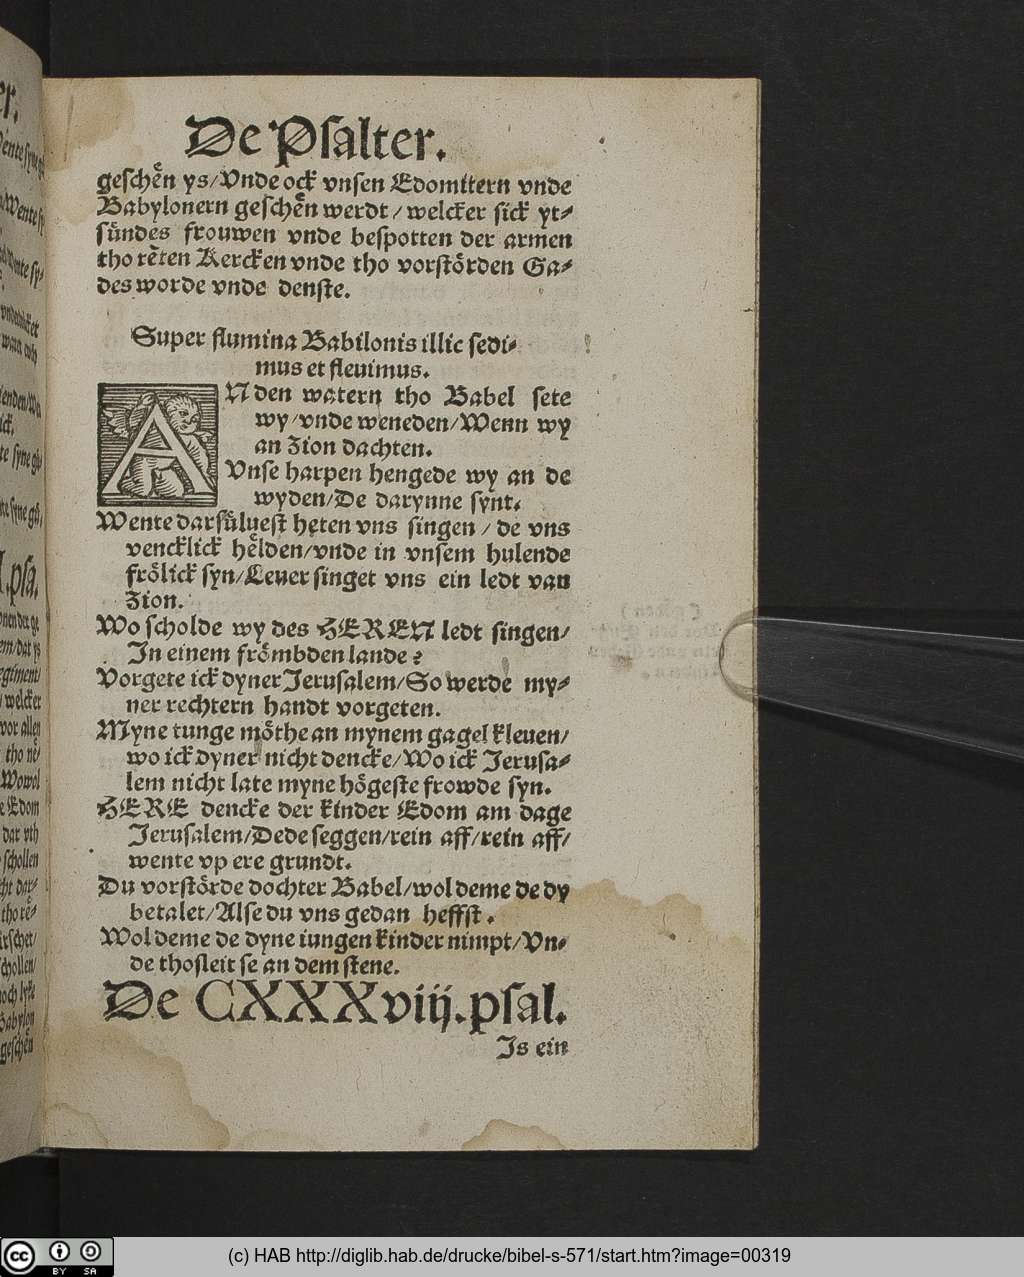 De Psalter.
geschēn ys/Vnde ock vnsen Edomitern vnde
Babylonern geschēn werdt/welcker sick yt⸗
sündes frouwen vnde bespotten der armen
tho rēten Kercken vnde tho vorstörden Ga⸗
des worde vnde denste.
Super flumina Babilonis illic sedi⸗
mus et fleuimus.
AN den watern tho Babel sete
wy/vnde weneden/Wenn wy
an Zion dachten.
Vnse harpen hengede wy an de
wyden/De darynne synt.
Wente darsüluest heten vns singen/de vns
vencklick helden/vnde in vnsem hulende
frölick syn/Leuer singet vns ein ledt van
Zion.
Wo scholde wy des HEREN ledt singen/
In einem frömbden lande?
Vorgete ick dyner Jerusalem/So werde my⸗
ner rechtern handt vorgeten.
Myne tunge möthe an mynem gagel kleuen/
wo ick dyner nicht dencke/Wo ick Jerusa⸗
lem nicht late myne högeste frowde syn.
HERE dencke der kinder Edom am dage
Jerusalem/De de seggen/rein aff/rein aff/
wente vp ere grundt.
Du vorstörde dochter Babel/wol deme de dy
betalet/Alse du vns gedan heffst.
Wol deme de dyne iungen kinder nimpt/Vn⸗
de thosleit se an dem stene.
De CXXXviij.psal.
Is ein
(c) HAB http://diglib.hab.de/drucke/bibel-s-571/start.htm?image=00319
cc BY SA